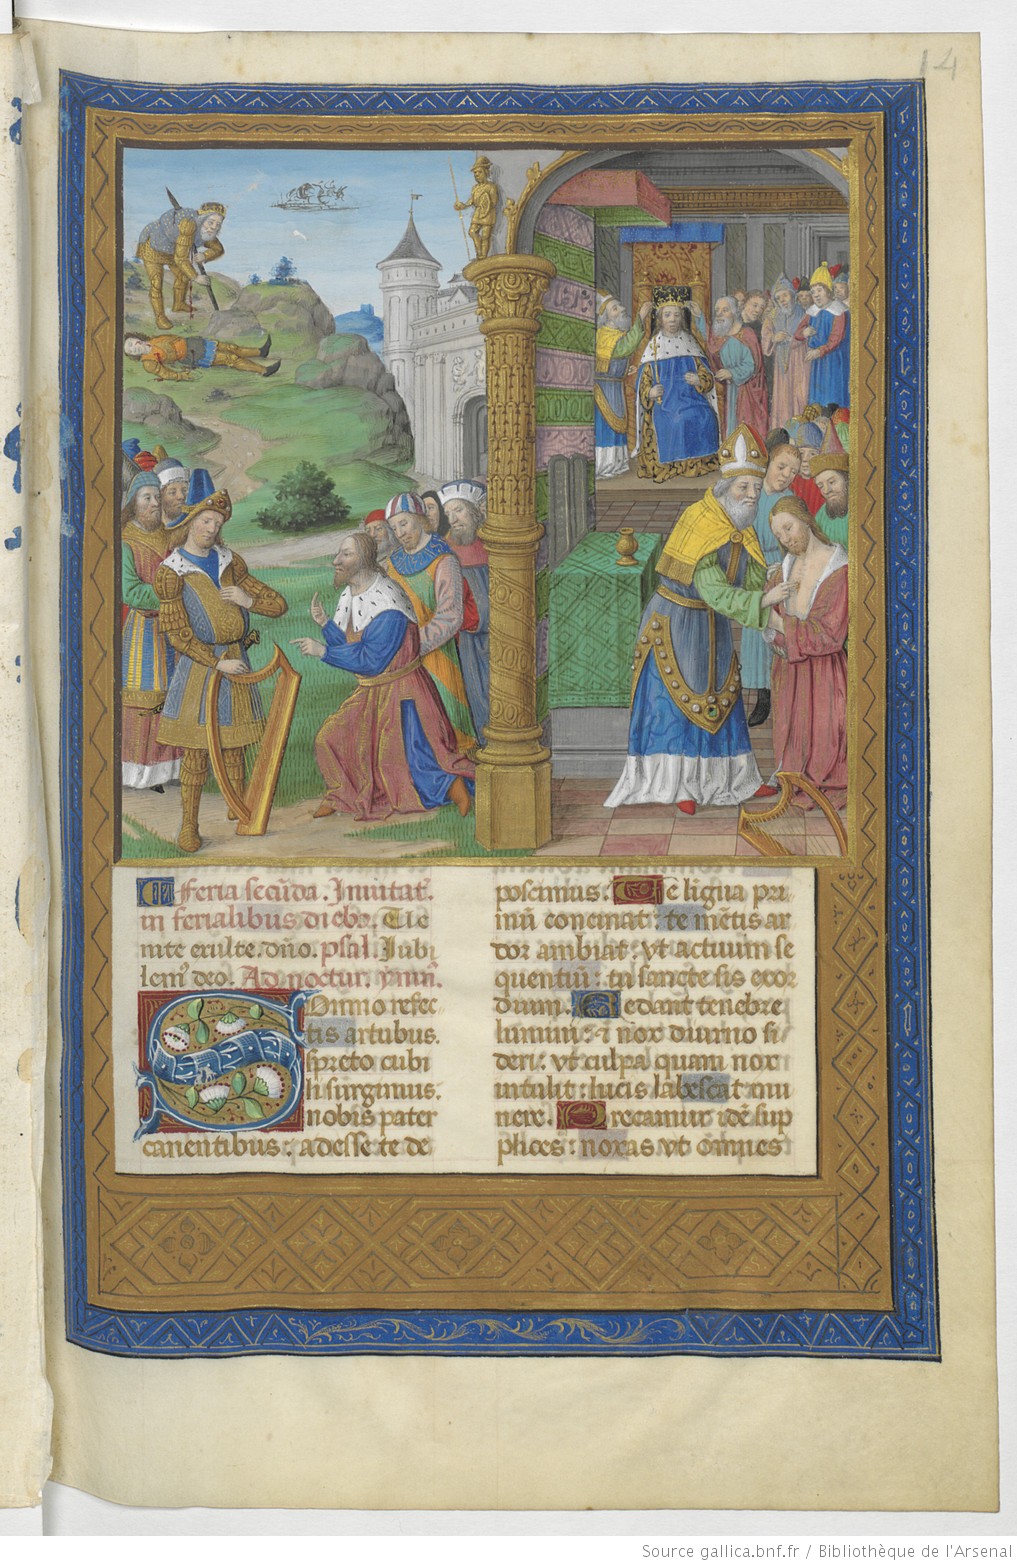 14
In feria secūda. Inuitat̄.
in ferialibus diebꝫ. Ue
nite exulte. dn̄o. psal. Iubi
lem᷒ deo. Ad noctur. ymn̄.
Somno refec
tis artubus.
spreto cubi
li surgimus.
nobis pater
canentibus: adesse te de
poscimus. Te ligua pri
mū concinat: te mētis ar
dor ambiat: vt actuum se
quentiū. tu sancte sis exor
dium. Cedant tenebre
lumini: et nox diurno si
deri: vt culpa quam nox
intulit: lucis labescat mu
nere. Precamur idē sup
plices: noxas vt om̄nes
Source gallica.bnf.fr / Bibliothèque de l'Arsenal